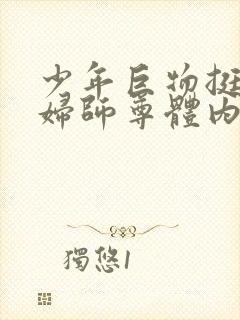 少年巨物挺
婦師尊體內
獨悠1